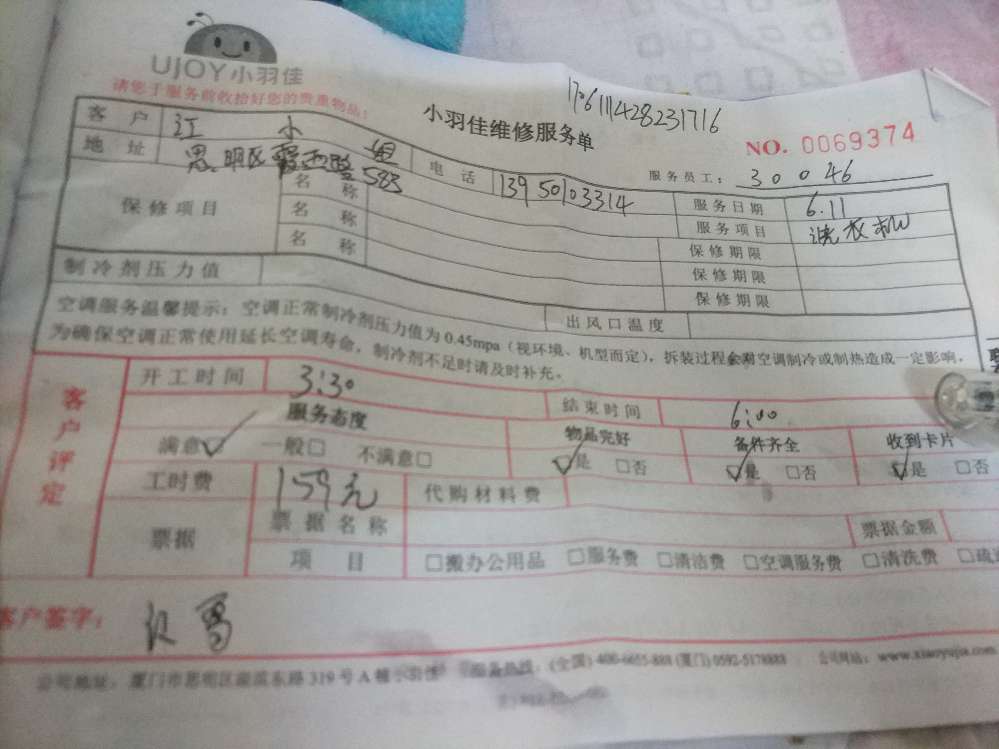 UJOY小羽佳
请您于服务前收拾好您的贵重物品!
小羽佳维修服务单
1706111428231716
NO. 0069374
服务员工: 30046
客户 江 小姐 电话 13950103314 服务日期 6.11
地址 思明区霞西路583 服务项目 洗衣机
保修项目 名称 保修期限
名称 保修期限
名称 保修期限
制冷剂压力值 出风口温度
空调服务温馨提示:空调正常制冷剂压力值为0.45mpa(视环境、机型而定),拆装过程会对空调制冷或制热造成一定影响,
为确保空调正常使用延长空调寿命,制冷剂不足时请及时补充。
客户评定
开工时间 3:30 结束时间 6:00
服务态度 物品完好 备件齐全 收到卡片
满意☑ 一般□ 不满意□ ☑是 □否 ☑是 □否 ☑是 □否
工时费 159元 代购材料费
票据 票据名称 票据金额
项目 □搬办公用品 □服务费 □清洁费 □空调服务费 □清洗费
客户签字:
公司地址:厦门市思明区 东路319号A幢小羽佳 服务热线:(全国)400-6655-888(厦门)0592-5178888 公司网站:www.xiaoyujia.com